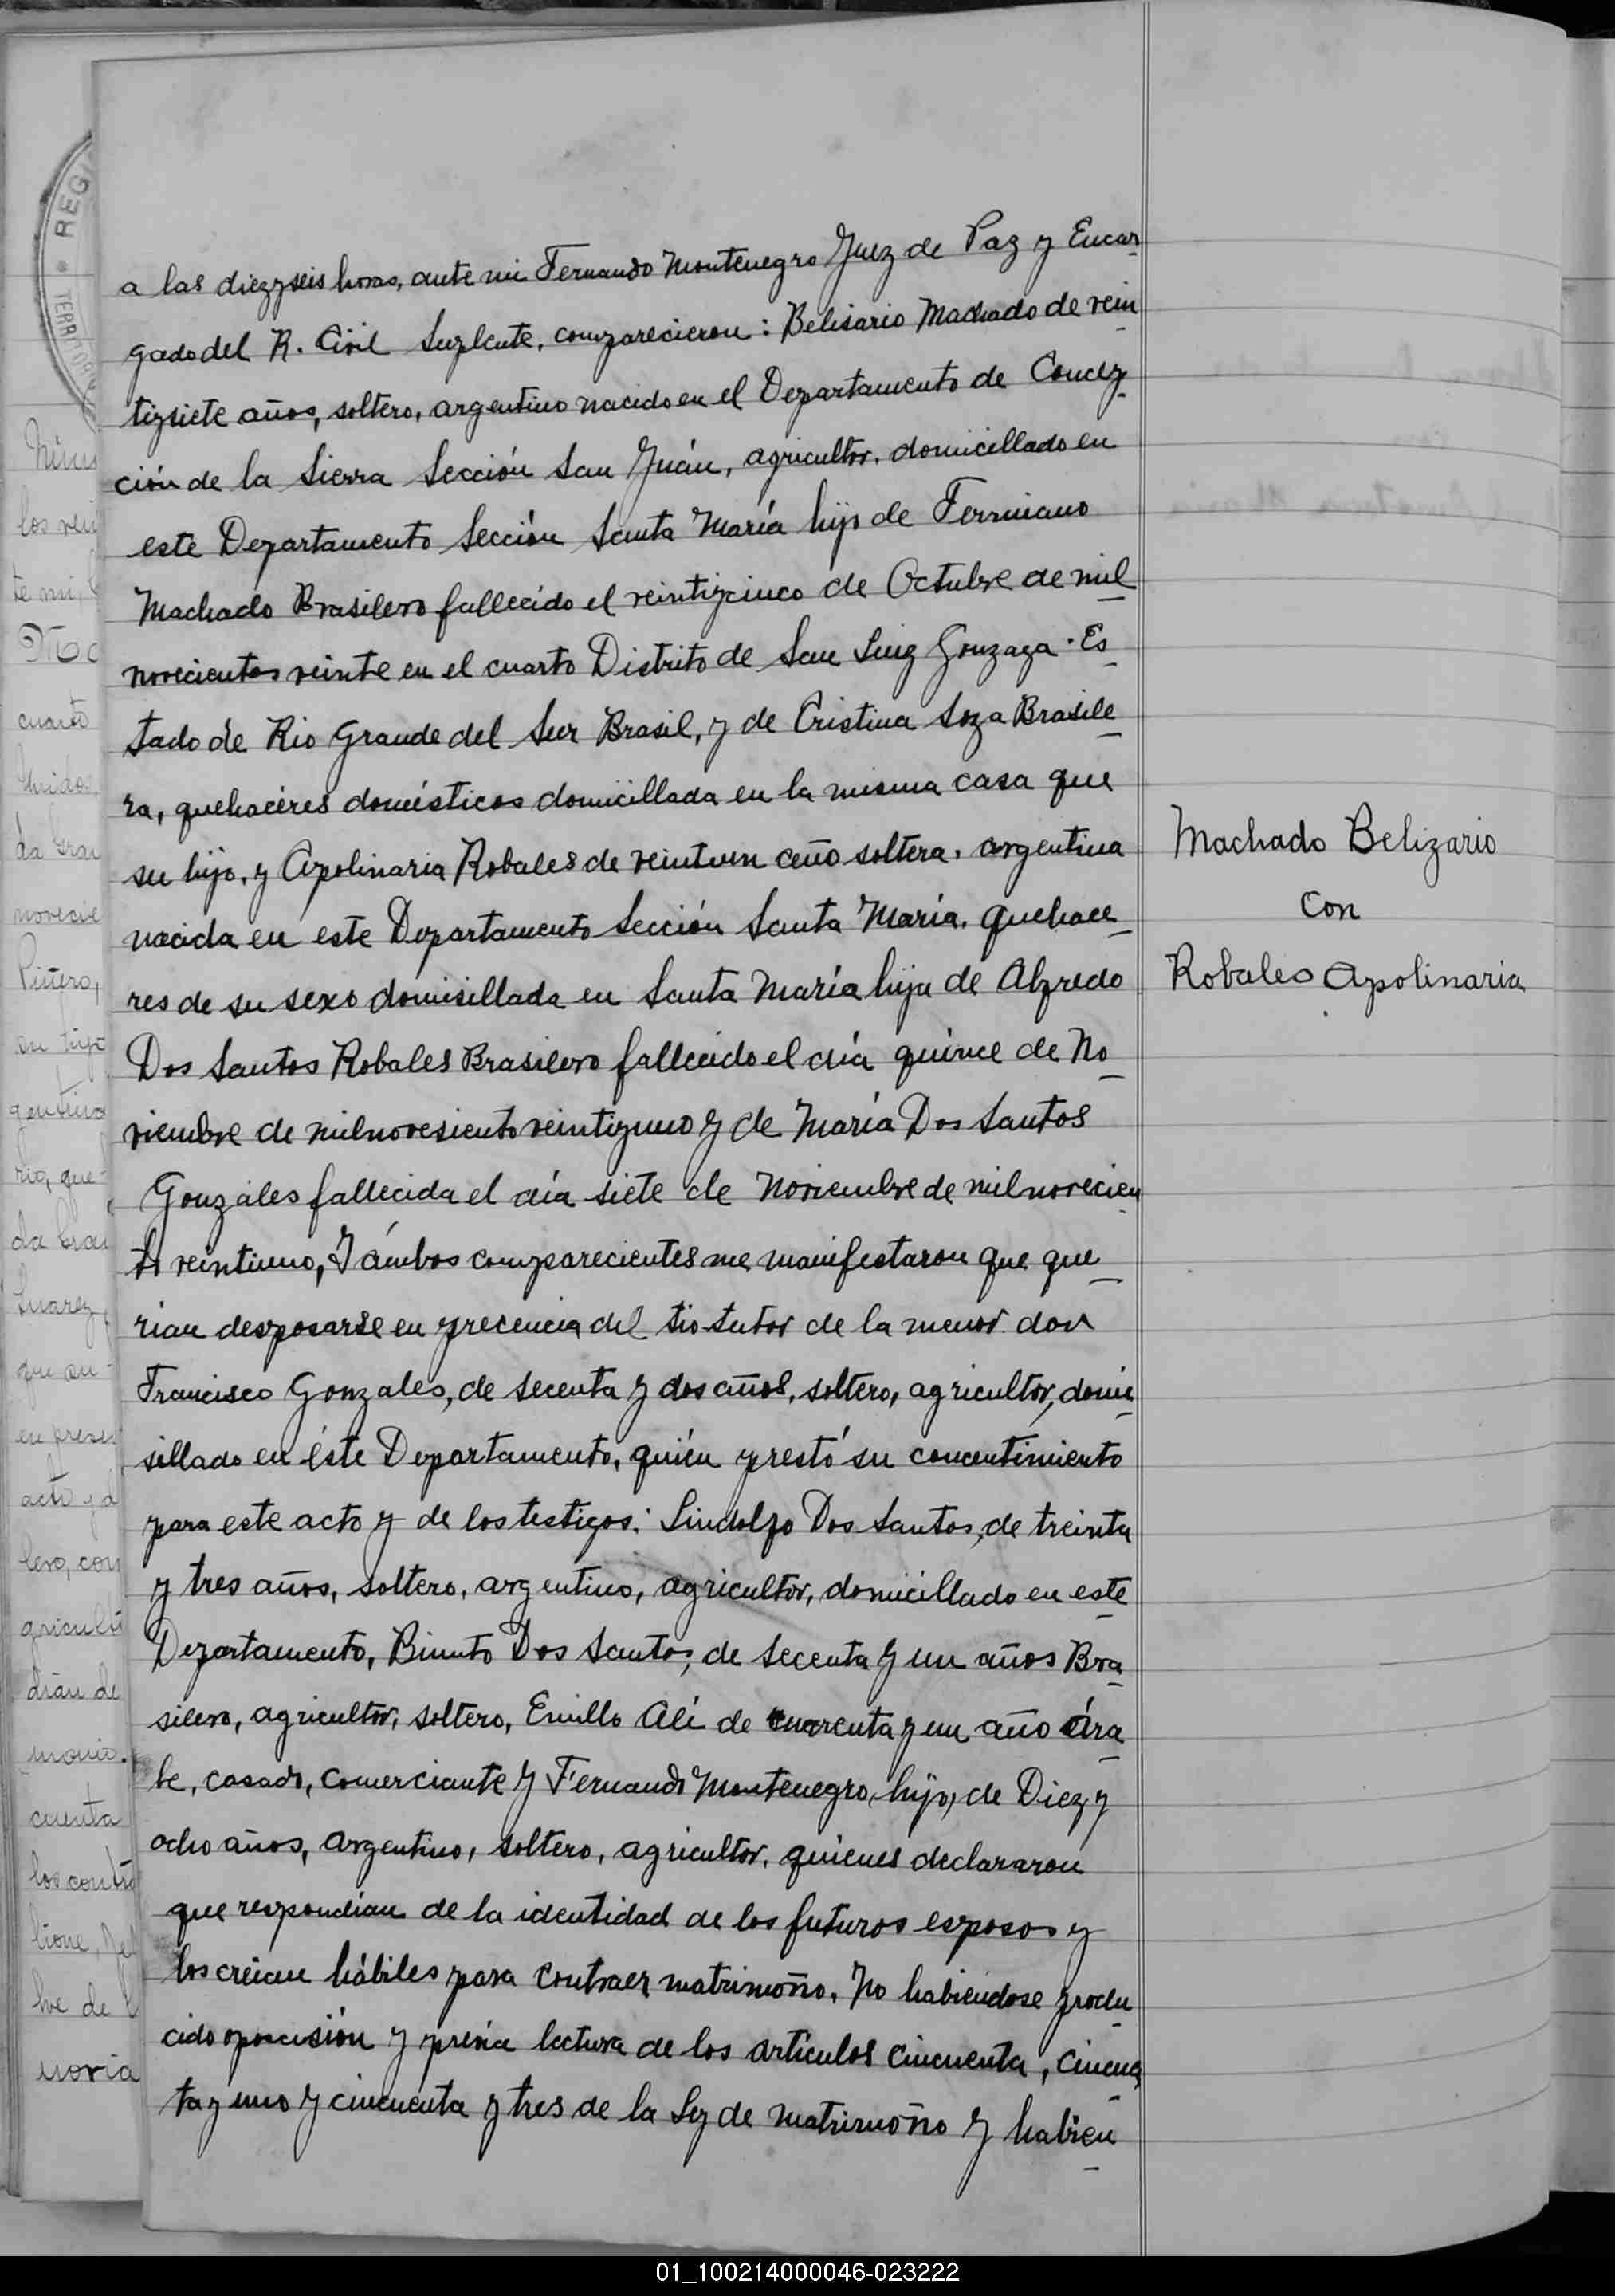 a las diezyseis horas, ante mi Fernando Montenegro Juez de Paz y Encar
gado del R. Civil Suplente, comparecieron: Belisario Machado de vein
tisiete años, soltero, argentino nacido en el Departamento de Concep
ción de la Sierra Sección San Juán, agricultor, domicillado en
este Departamento Sección Santa María hijo de Ferminiano
Machado Brasilero fallecido el veintiycinco de Octubre de mil
novecientos veinte en el cuarto Distrito de San Luiz Gonzaga. Es
tado de Rio Grande del Sur Brasil, y de Cristina Soza Brasile
ra, quehacéres domésticos domicillada en la misma casa que
su hijo, y Apolinaria Robales de veintiun año soltera, argentina
nacida en este Departamento Sección Santa María, quehace
res de su sexo domisillada en Santa María hija de Alfredo
Dos Santos Robales Brasilero fallecido el día quince de No
viembre de milnovesiento veintiyuno y de María Dos Santos
Gonzáles fallecida el día siete de Noviembre de milnovecien
to veintiuno, Y ámbos comparecientes me manifestaron que que
rian desposarse en precencia del tio tutor de la menor don
Francisco Gonzales, de secenta y dos años, soltero, agricultor, domi
sillado en éste Departamento, quién prestó su concentimiento
para este acto y de los testigos: Lindolfo Dos Santos, de treinta
y tres años, soltero, argentino, agricultor, domicillado en este
Departamento, Dos Santos, de secenta y un años Bra
silero, agricultor, soltero, Emillo Alí de cuarenta y un año ára
be, casado, comerciante y Fernando Montenegro (hijo) de Diez y
ocho años, argentino, soltero, agricultor, quienes declararon
que respondian de la identidad de los futuros esposos y
los creian hábiles para contraer matrimoño. No habiendose produ
cido oposición y previa lectura de los artículos cincuenta, cincuen
ta y uno y cincuenta y tres de la Ley de matrimoño y habien
Machado Belizario
con
Robales Apolinaria
REGI
TERRITORI
cuarto
Piñero,
Suarez,
acto y d
dian de
monio.
cuenta
01_100214000046-023222